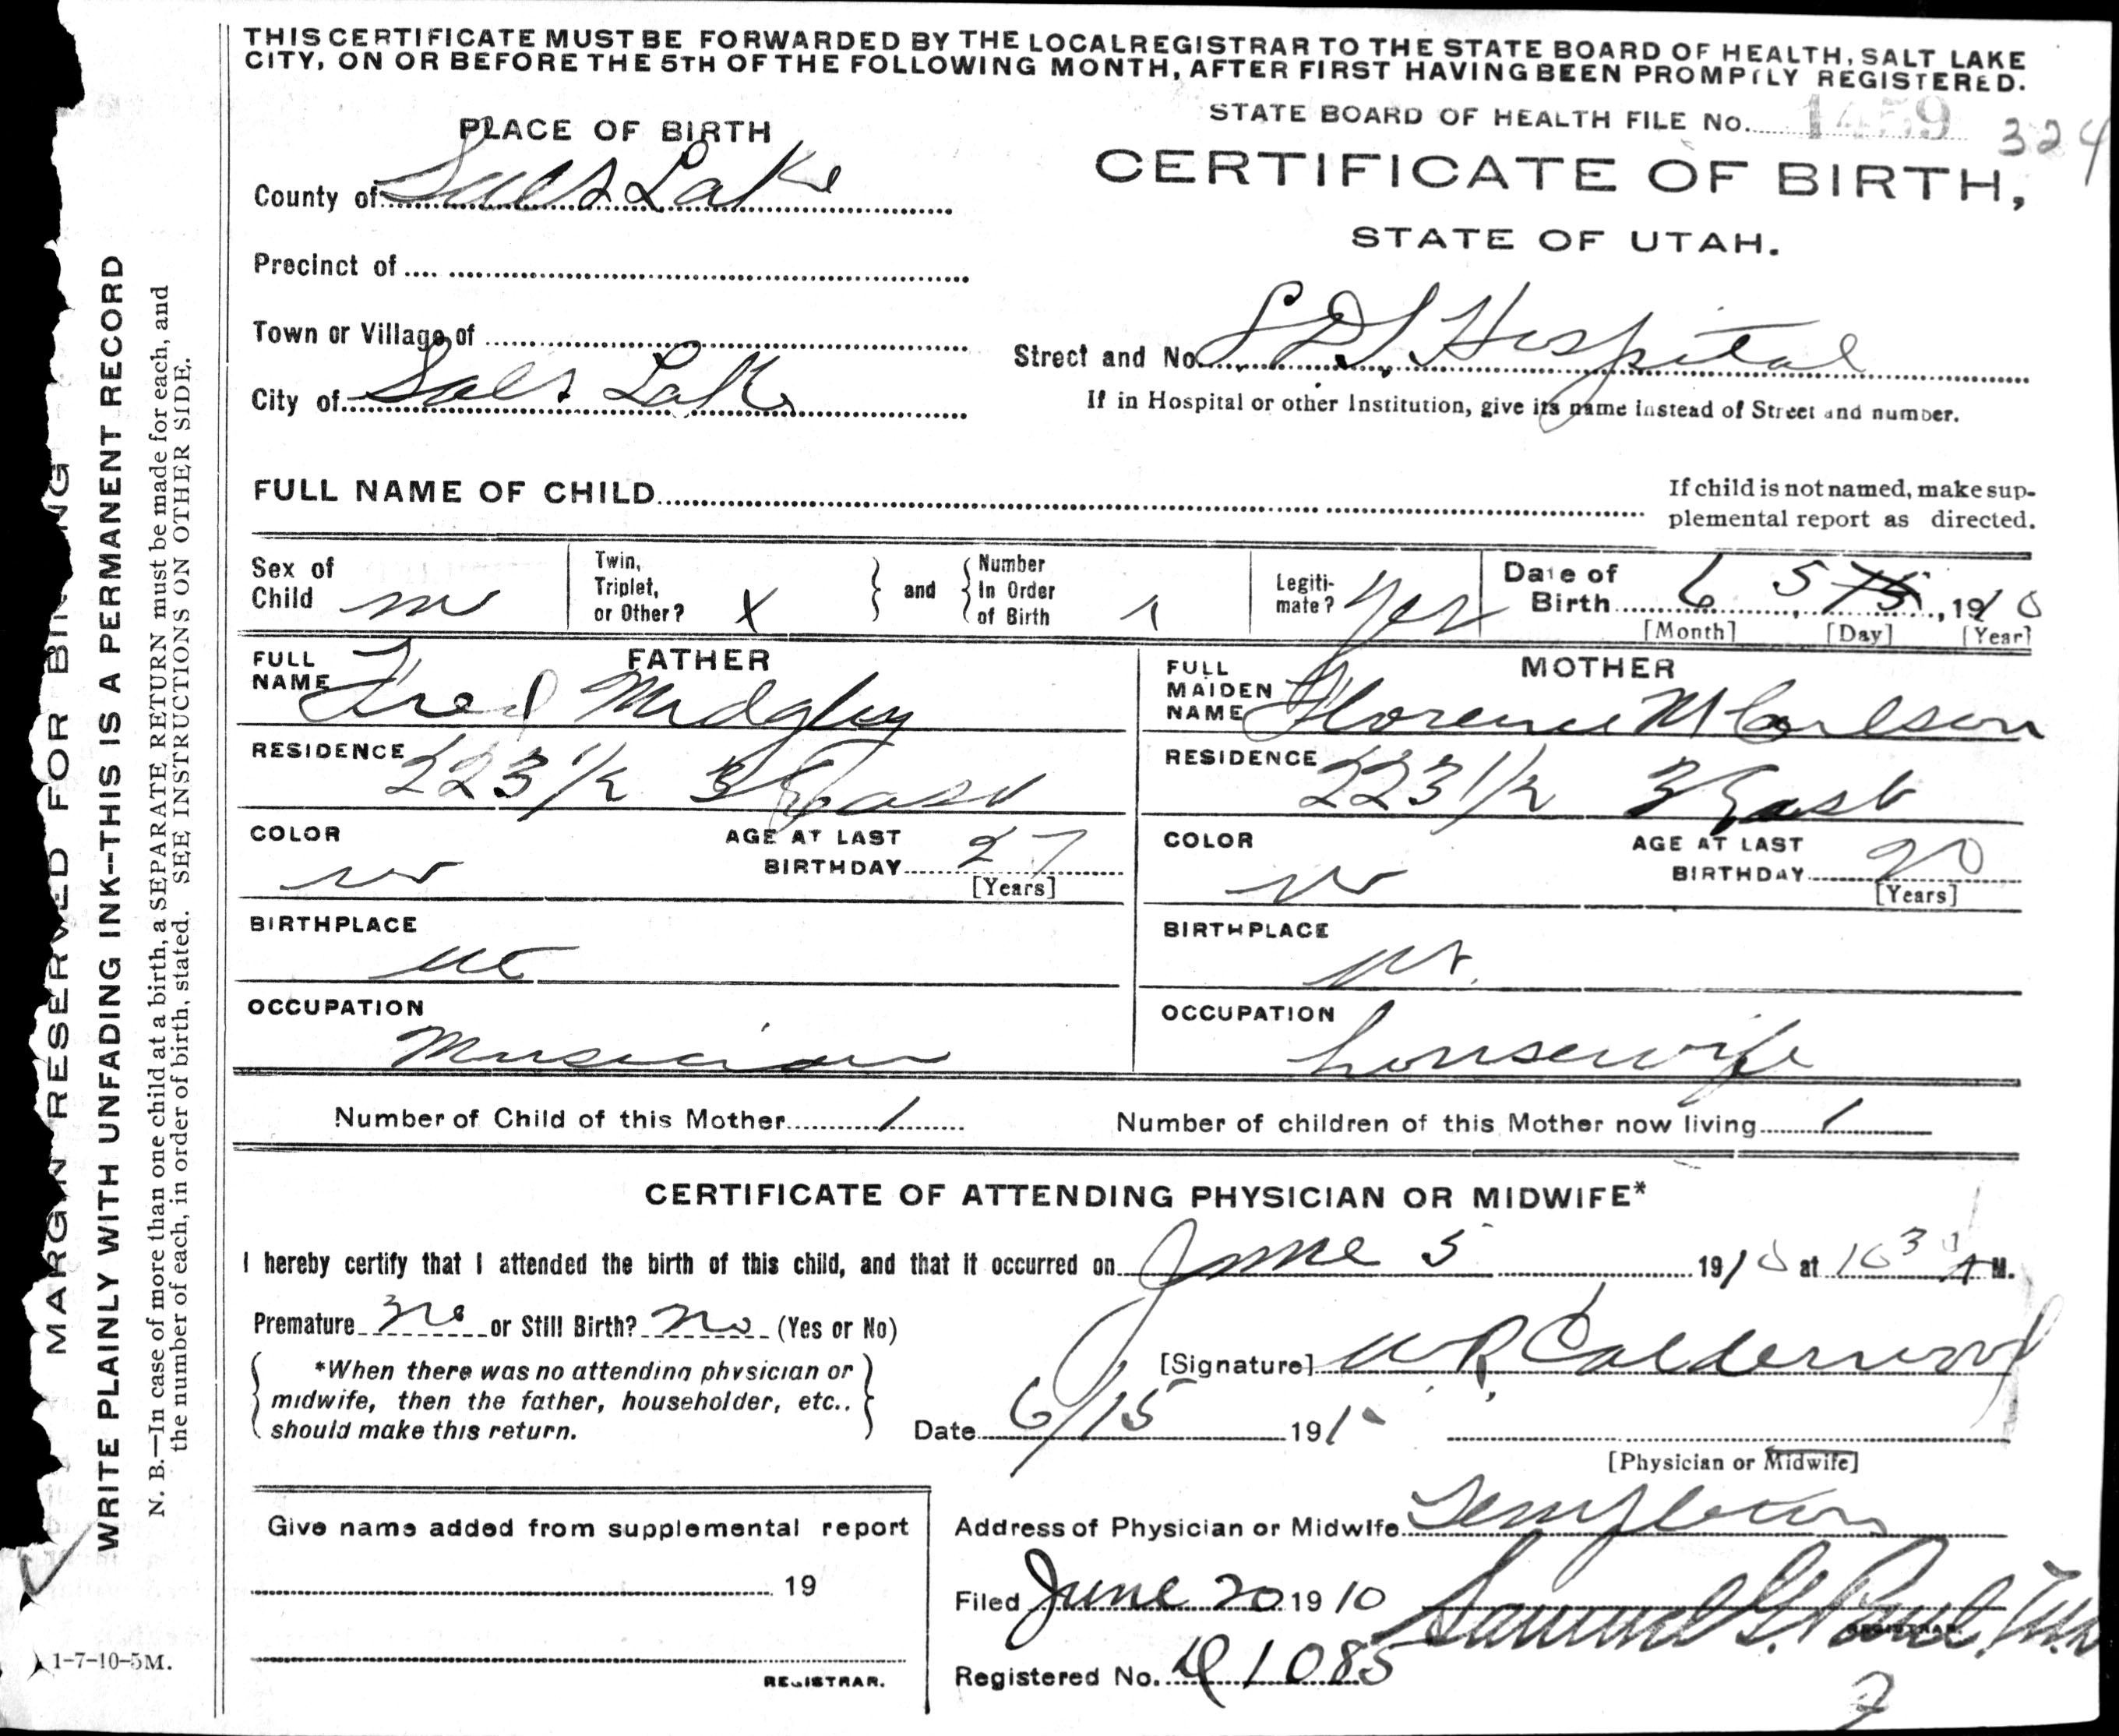 THIS CERTIFICATE MUST BE FORWARDED BY THE LOCAL REGISTRAR TO THE STATE BOARD OF HEALTH, SALT LAKE
CITY, ON OR BEFORE THE 5TH OF THE FOLLOWING MONTH, AFTER FIRST HAVING BEEN PROMPTLY REGISTERED.
STATE BOARD OF HEALTH FILE No. 1459 324
PLACE OF BIRTH
CERTIFICATE OF BIRTH,
STATE OF UTAH.
County of Salt Lake
Precinct of
Town or Village of
Street and No. LDS Hospital
City of Salt Lake
If in Hospital or other Institution, give its name instead of Street and number.
FULL NAME OF CHILD
If child is not named, make sup-
plemental report as directed.
Sex of Child m
Twin, Triplet, or Other? X
and
Number In Order of Birth 1
Legiti-mate? yes
Date of Birth 6 5, 1910
[Month] [Day] [Year]
FATHER
FULL NAME Fred Midgley
MOTHER
FULL MAIDEN NAME Florence M Carlson
RESIDENCE 223 1/2 3 East
RESIDENCE 223 1/2 3 East
COLOR w
AGE AT LAST BIRTHDAY 27
[Years]
COLOR w
AGE AT LAST BIRTHDAY 20
[Years]
BIRTHPLACE ut
BIRTHPLACE ut.
OCCUPATION Musician
OCCUPATION housewife
Number of Child of this Mother 1
Number of children of this Mother now living 1
CERTIFICATE OF ATTENDING PHYSICIAN OR MIDWIFE*
I hereby certify that I attended the birth of this child, and that it occurred on June 5 1910 at 10 30 A M.
Premature no or Still Birth? no (Yes or No)
[Signature] W R Calderwood
*When there was no attending physician or
midwife, then the father, householder, etc.,
should make this return.
Date 6/15 191
[Physician or Midwife]
Give name added from supplemental report
19
REGISTRAR.
Address of Physician or Midwife Templeton
Filed June 20 1910 Samuel G. Paul, M.D.
REGISTRAR.
Registered No. 1085
7
MARGIN RESERVED FOR BINDING
WRITE PLAINLY WITH UNFADING INK--THIS IS A PERMANENT RECORD
N. B.—In case of more than one child at a birth, a SEPARATE RETURN must be made for each, and
the number of each, in order of birth, stated. SEE INSTRUCTIONS ON OTHER SIDE.
1-7-10-5M.